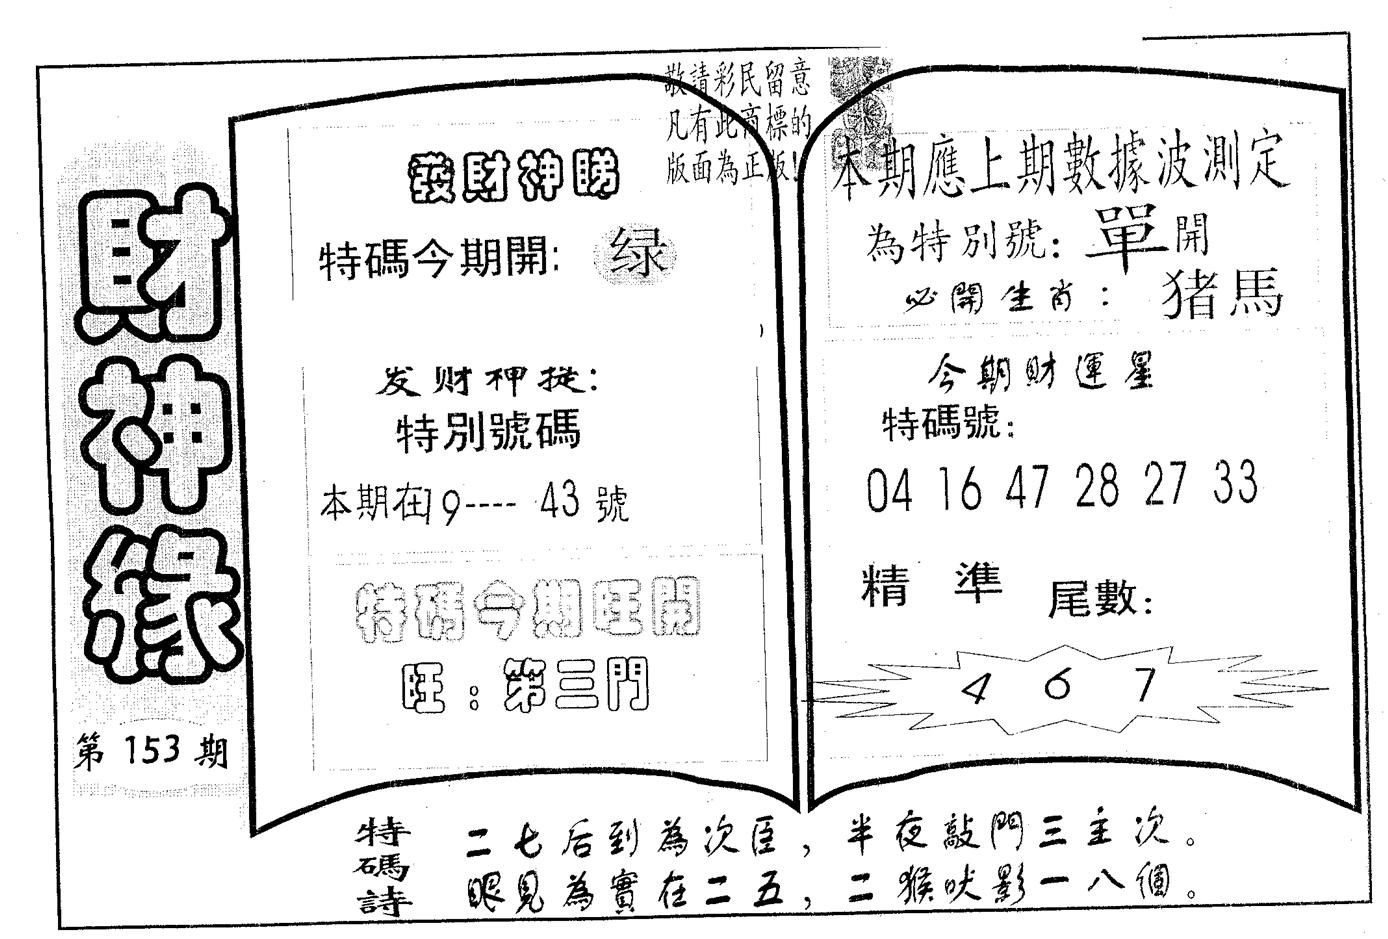 財神緣
第153期
敬請彩民留意
凡有此商標的
版面為正版!
發財神睇
特碼今期開:绿
发财神提:
特別號碼
本期在19----43號
特碼今期旺開
旺:第三門
本期應上期數據波測定
為特別號:單開
必開生肖:猪馬
今期財運星
特碼號:
04 16 47 28 27 33
精準尾數:
4 6 7
特碼詩
二七后到為次臣,半夜敲門三主次。
眼見為實在二五,二猴吠影一八個。